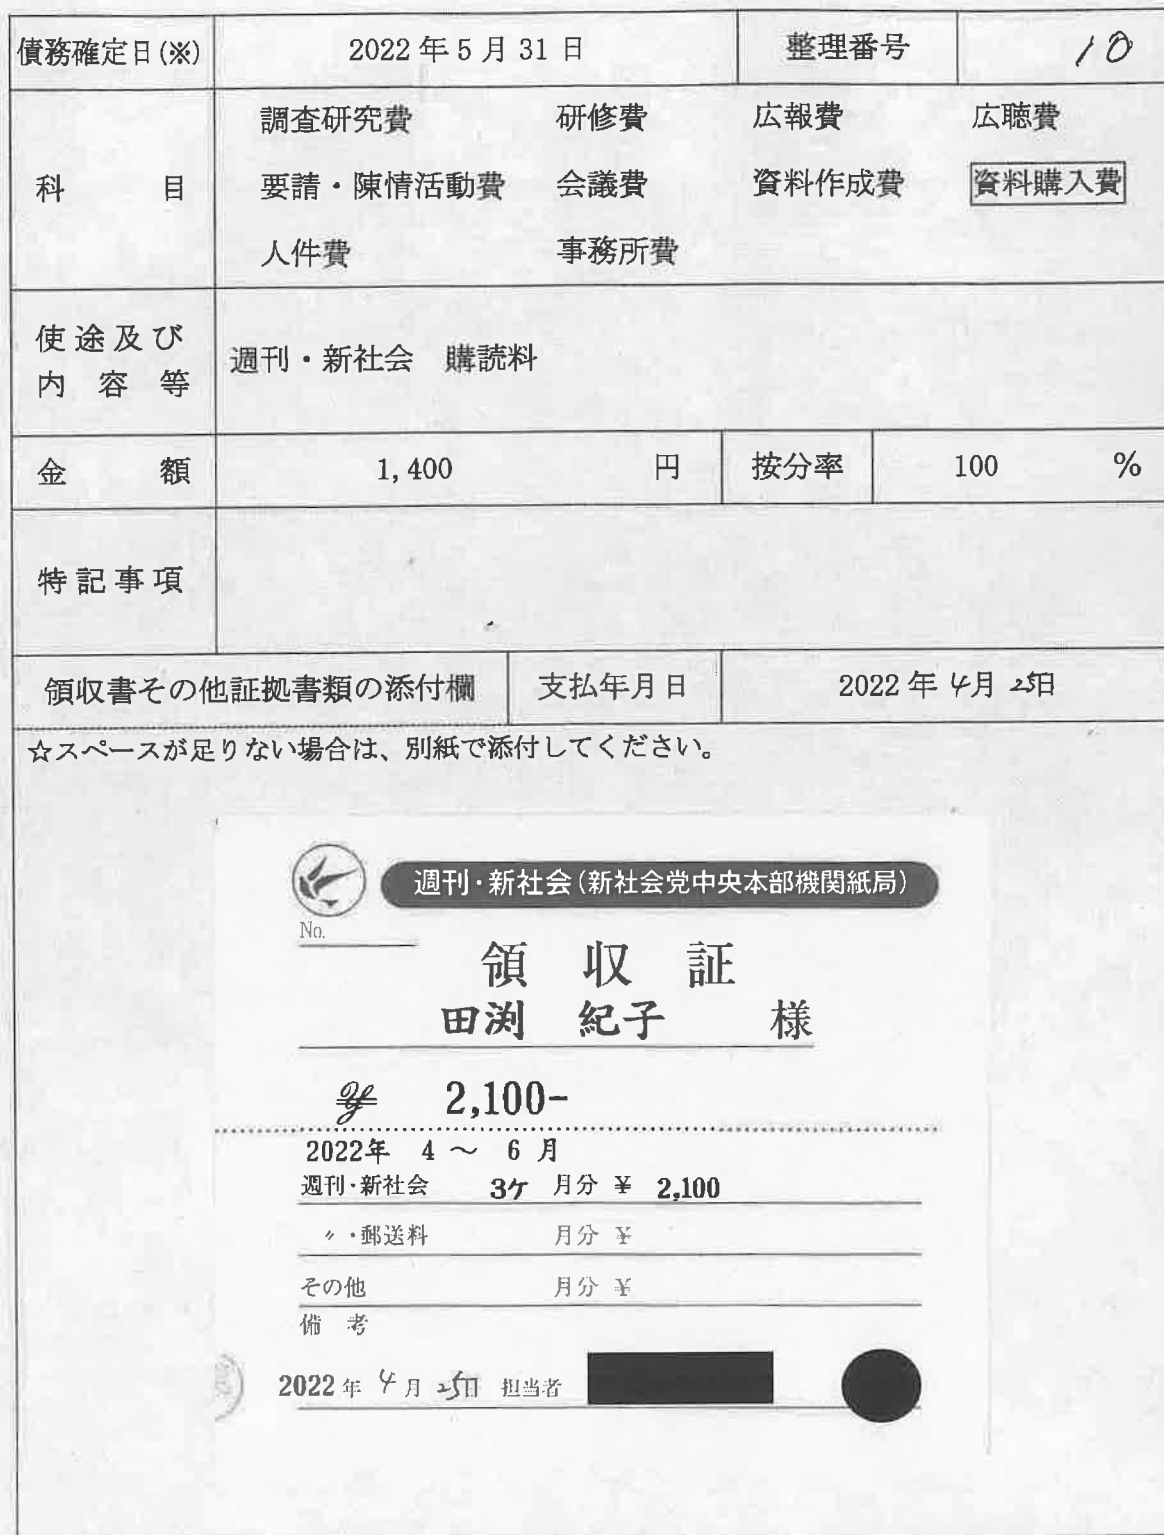 債務確定日(※) 2022年5月31日 整理番号 10
科目 調査研究費 研修費 広報費 広聴費
要請・陳情活動費 会議費 資料作成費 資料購入費
人件費 事務所費
使途及び
内容等
週刊・新社会 購読料
金額 1,400 円 按分率 100 %
特記事項
領収書その他証拠書類の添付欄 支払年月日 2022年4月25日
☆スペースが足りない場合は、別紙で添付してください。
週刊・新社会(新社会党中央本部機関紙局)
No.
領収証
田渕 紀子 様
¥ 2,100-
2022年 4 ～ 6 月
週刊・新社会 3ケ 月分 ¥ 2,100
〃・郵送料 月分 ¥
その他 月分 ¥
備考
2022年4月25日 担当者